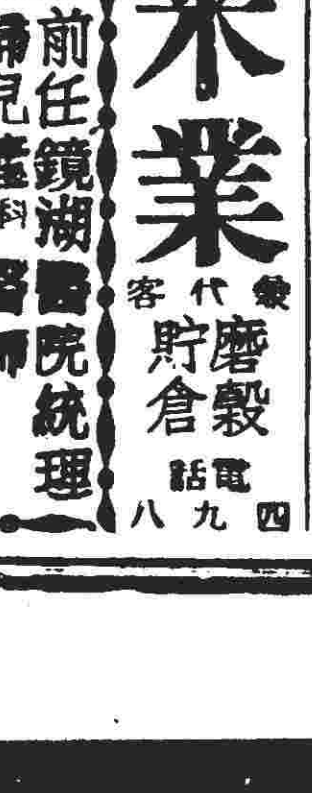 米業
兼代客
磨穀
貯倉
電話
四九八
前任鏡湖醫院統理
婦兒產科醫師